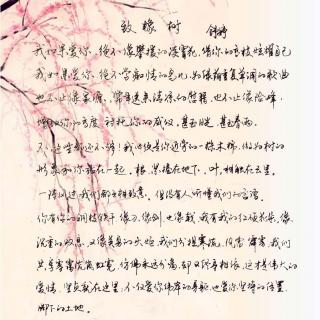 致橡树
舒婷
我如果爱你，绝不像攀援的凌霄花，借你的高枝炫耀自己
我如果爱你，绝不学痴情的鸟儿，为绿荫重复单调的歌曲
也不止像泉源，常年送来清凉的慰藉，也不止像险峰，
增加你的高度，衬托你的威仪，甚至日光，甚至春雨。
不，这些都还不够！我必须是你近旁的一株木棉，做为树的
形象和你站在一起。根，紧握在地下，叶，相触在云里。
一阵风过，我们都互相致意，但没有人听懂我们的言语。
你有你的铜枝铁干，像刀，像剑，也像戟，我有我的红硕花朵，像
沉重的叹息，又像英勇的火炬，我们分担寒潮、风雷、霹雳，我们
共享雾霭流岚虹霓，仿佛永远分离，却又终身相依，这才是伟大的
爱情，坚贞就在这里，不仅爱你伟岸的身躯，也爱你坚持的位置，
脚下的土地。